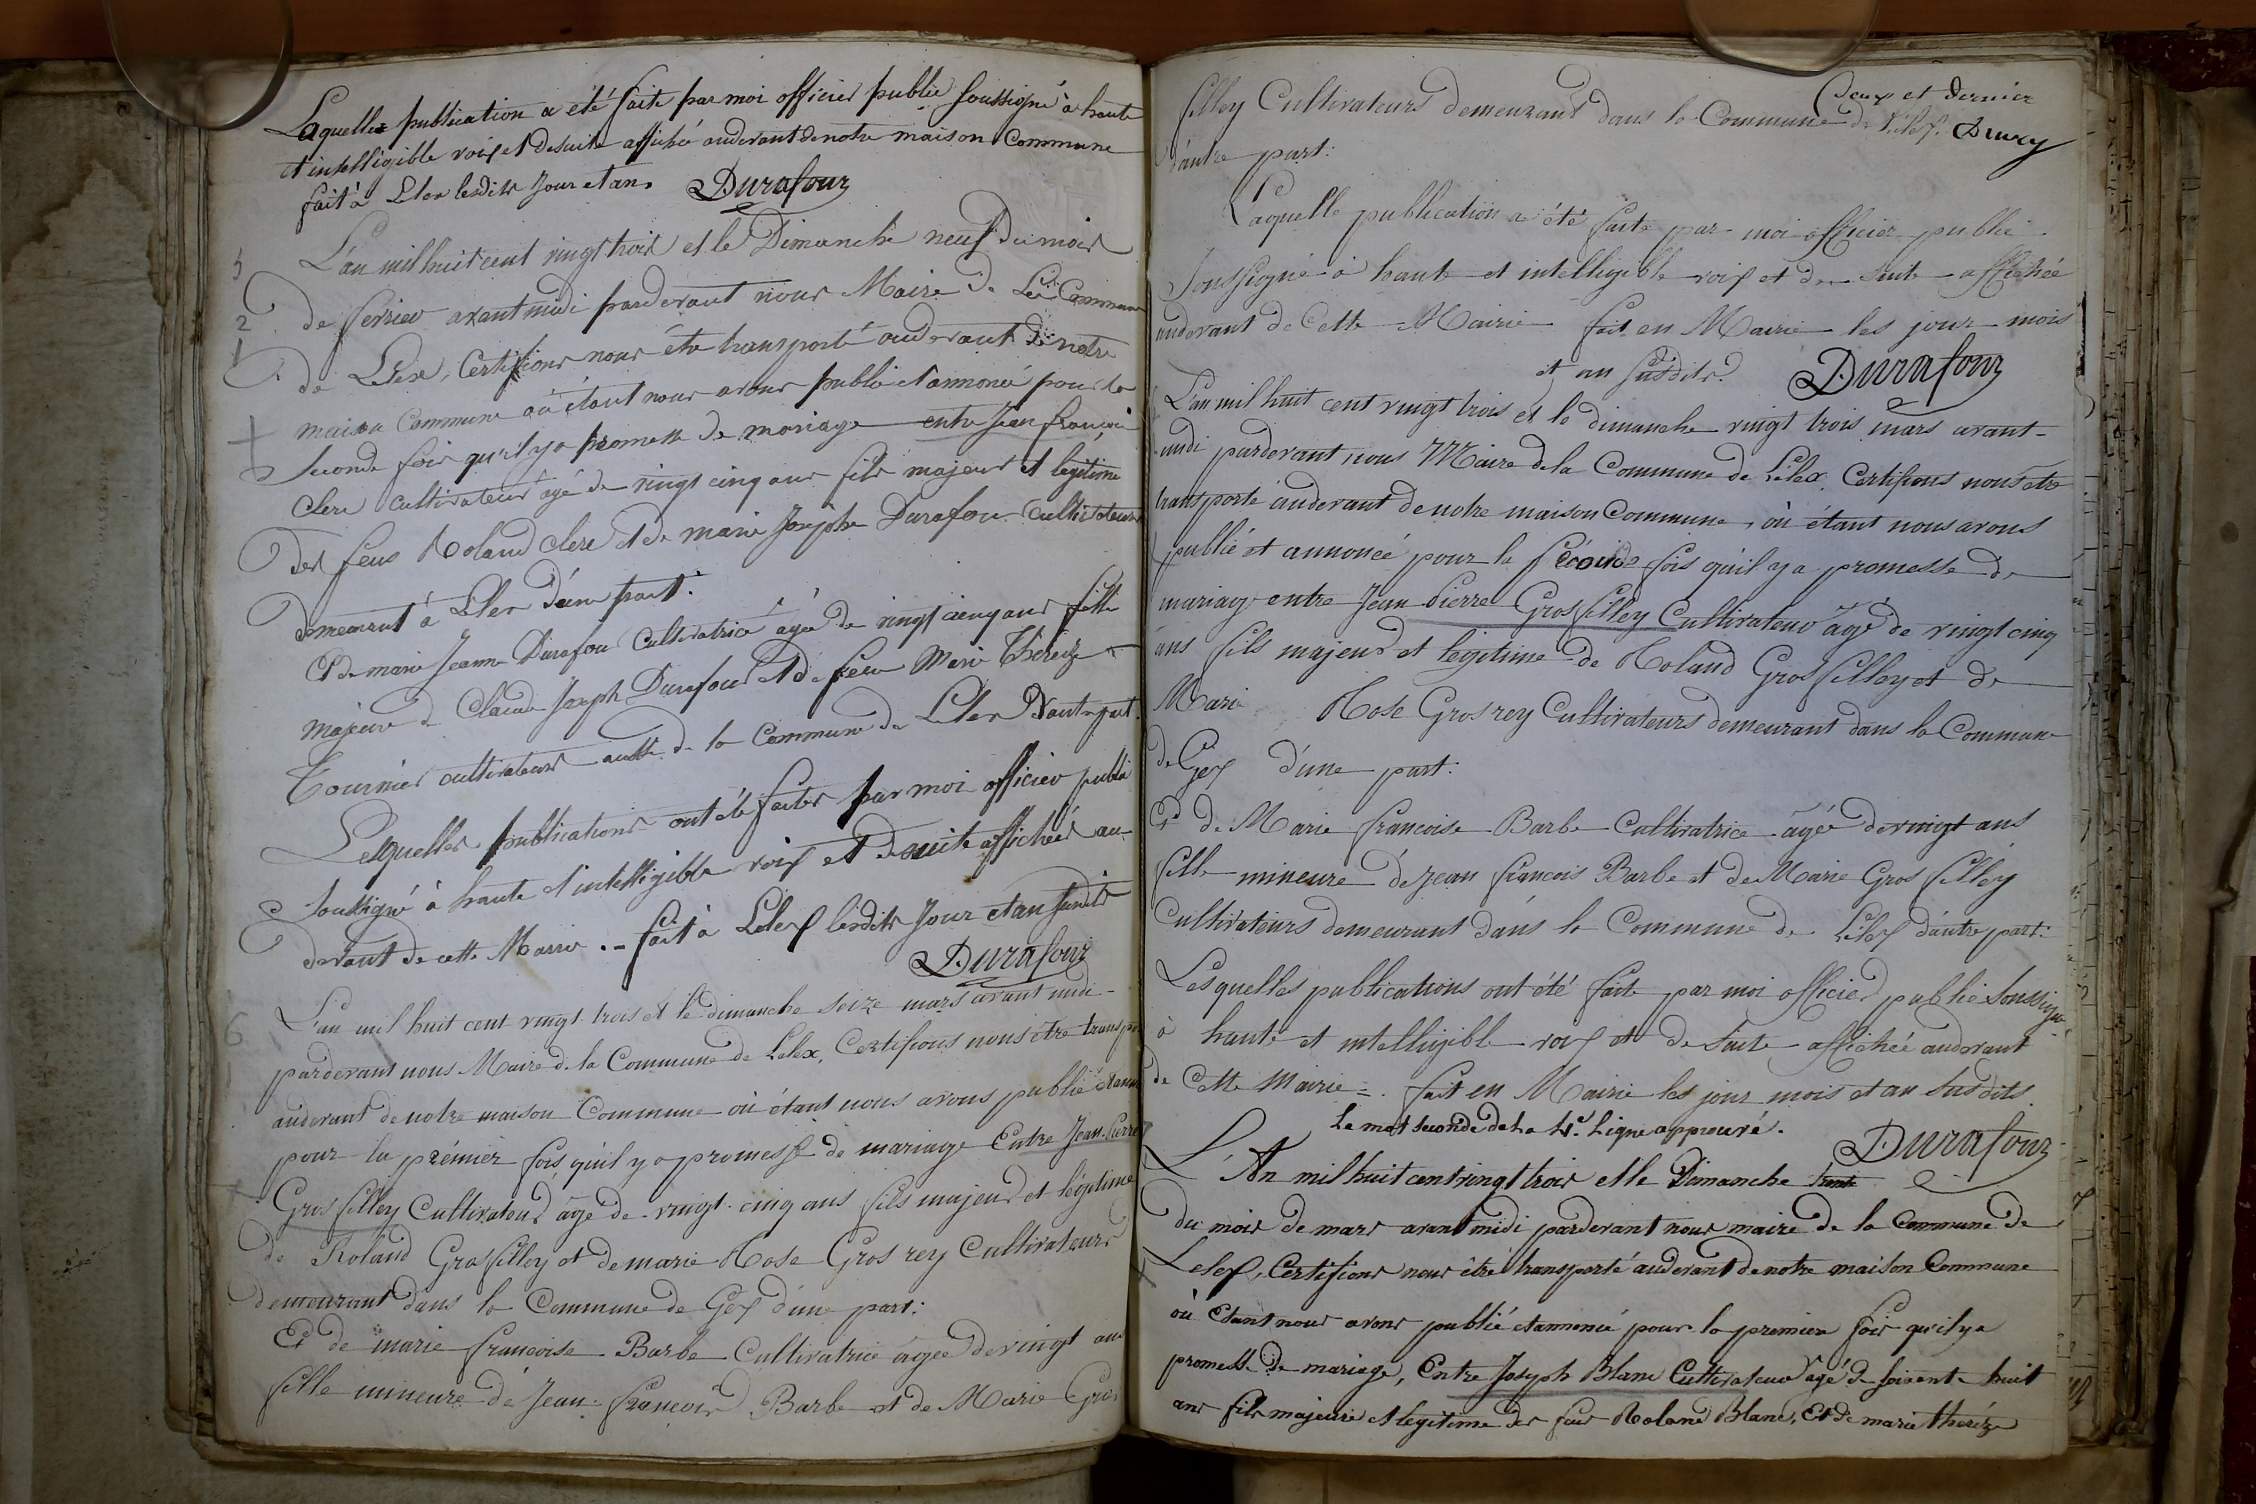 Laquelle publication a été faite par moi officier public soussigné à haute
et intelligible voix et desuite affichée audevant de notre maison Commune
fait à Lelex lesdits Jour et an. Durafour
5
L'an mil huit cent vingt trois et le Dimanche neuf du mois
2
de fevrier avant midi pardevant nous Maire de La Commune
1
de Lelex, Certifions nous être transporté audevant de notre
maison Commune où étant nous avons publié et annoncé pour la
seconde fois qu'il y a promesse de mariage entre Jean françois
Clerc cultivateur agé de vingt cinq ans fils majeur et legitime
des feus Roland Clerc et de marie Josephe Durafour cultivateurs
demeurant à Lelex d'une part.
Et de marie Jeanne Durafour Cultivatrice agée de vingt cinq ans fille
majeure de Claude Joseph Durafour et de feue Marie Thérèze
Tournier cultivateurs aussi de la Commune de Lelex D'autre part.
Lesquelles publications ont été faites par moi officier public
soussigné à haute et intelligible voix et desuite affichées au-
devant de cette Marrie .- fait à Lelex lesdits Jour et an susdits
Durafour
6
L'an mil huit cent vingt-trois et le dimanche seize mars avant midi-
pardevant nous Maire de la Commune de Lelex, Certifions nous être transpor
audevant de notre maison Commune où étant nous avons publié et annon
pour la prémier fois qu'il y a promesse de mariage Entre Jean-Pierre
Grosfilley Cultivateur âgé de vingt-cinq ans fils majeur et légitime
de Roland Grosfilley et de marie Rose Gros rey Cultivateurs
demeurant dans la Commune de Gex d'une part:
Et de marie françoise Barbe Cultivatrice âgée de vingt ans
fille mineure de Jean françois Barbe et de Marie Gros
deux et dernier
filley Cultivateurs demeurant dans la Commune de Lélex.
d'autre part:
Laquelle publication a été faite par moi officier public
Soussigné à haute et intelligible voix et de suite affichée
audevant de Cette Mairie fait en Mairie les jour mois
et an susdits. Durafour
L'an mil huit cent vingt trois et le dimanche vingt trois mars avant-
midi pardevant nous Maire de la Commune de Lélex. Certifions nous être
transporté audevant de notre maison Commune, où étant nous avons
publié et annoncé pour la séconde fois qu'il y a promesse de
mariage entre Jean Pierre Grosfilley Cultivateur âgé de vingt cinq
ans fils majeur et légitime de Roland Grosfilley et de
Marie Rose Grosrey Cultivateurs demeurant dans la Commune
de Gex d'une part:
Et de Marie françoise Barbe Cultivatrice âgée de vingt ans
fille mineure de Jean françois Barbe et de Marie Gros filley
Cultivateurs demeurant dans la Commune de Lélex d'autre part:
Lesquelles publications ont été faite par moi officier public soussigné
à haute et intelligible voix et de suite affichée audevant
de Cette Mairie =. fait en Mairie les jour mois et an susdits.
Le mot seconde de la 4e. Ligne approuvé. Durafour
L'An mil huit cent vingt trois et le Dimanche trente
du mois de mars avant midi pardevant nous maire de la Commune de
Lelex, Certifions nous être transporté audevant de notre maison Commune
où Etant nous avons publié et annoncé pour la premiere fois qu'il y a
promesse de mariage, Entre Joseph Blanc Cultivateur agé de soixante huit
ans fils majeure et legitime des feus Roland Blanc, Et de marie therèze